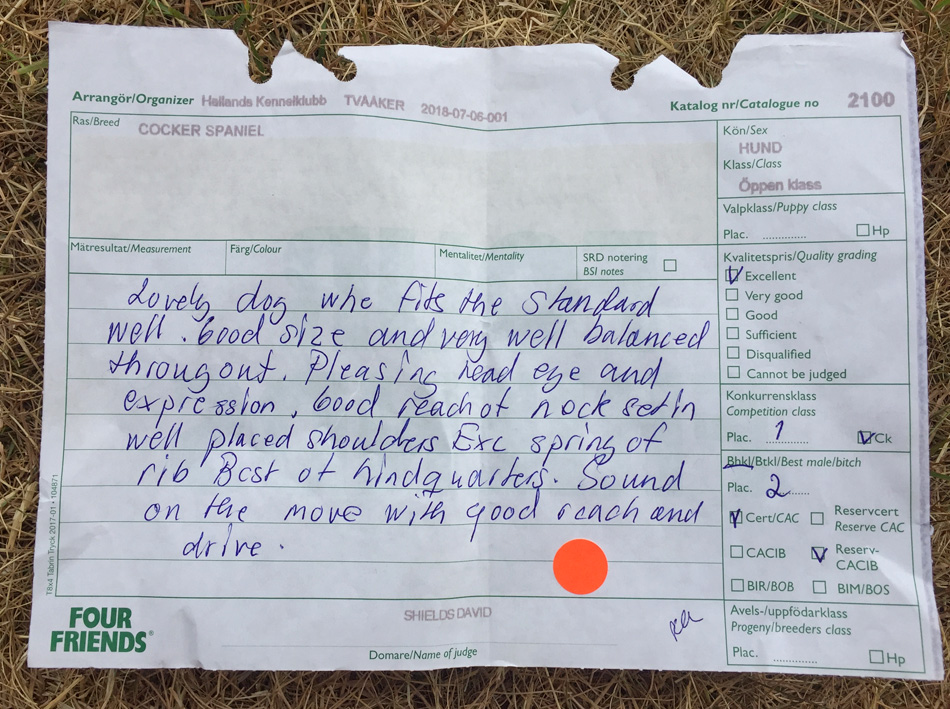 Arrangör/Organizer Hallands Kennelklubb TVÅÅKER 2018-07-06-001
Katalog nr/Catalogue no 2100
Ras/Breed COCKER SPANIEL
Kön/Sex
HUND
Klass/Class
Öppen klass
Valpklass/Puppy class
Plac. .............. Hp
Mätresultat/Measurement Färg/Colour Mentalitet/Mentality SRD notering
BSI notes
Kvalitetspris/Quality grading
Excellent
Very good
Good
Sufficient
Disqualified
Cannot be judged
Lovely dog who fits the standard
well. Good size and very well balanced
througout. Pleasing head eye and
expression. Good reach of neck set in
well placed shoulders Exc spring of
rib Best of hindquarters. Sound
on the move with good reach and
drive.
Konkurrensklass
Competition class
Plac. 1 Ck
Bhkl/Btkl/Best male/bitch
Plac. 2
Cert/CAC Reservcert
Reserve CAC
CACIB Reserv-
CACIB
BIR/BOB BIM/BOS
Avels-/uppfödarklass
Progeny/breeders class
Plac. .............. Hp
T8x4 Tabrin Tryck 2017-01 • 104871
FOUR
FRIENDS®
SHIELDS DAVID
Domare/Name of judge